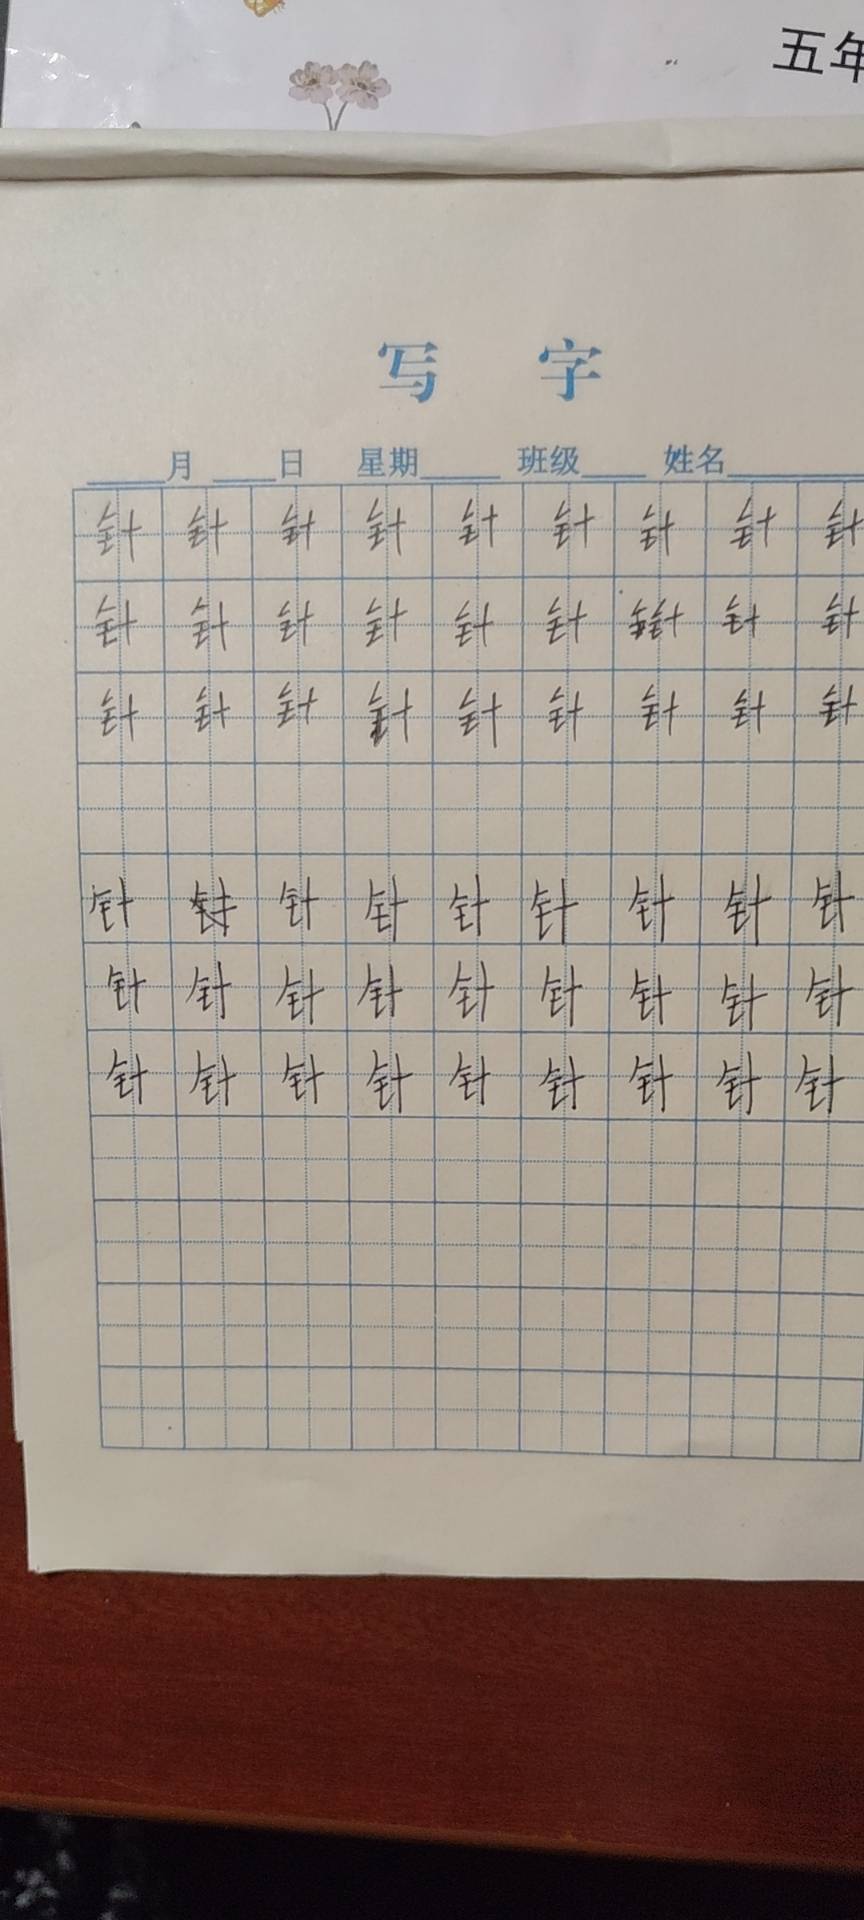 五年
写 字
月 日 星期 班级 姓名
针 针 针 针 针 针 针 针 针
针 针 针 针 针 针 针 针
针 针 针 针 针 针 针 针 针
针 针 针 针 针 针 针 针
针 针 针 针 针 针 针 针 针
针 针 针 针 针 针 针 针 针